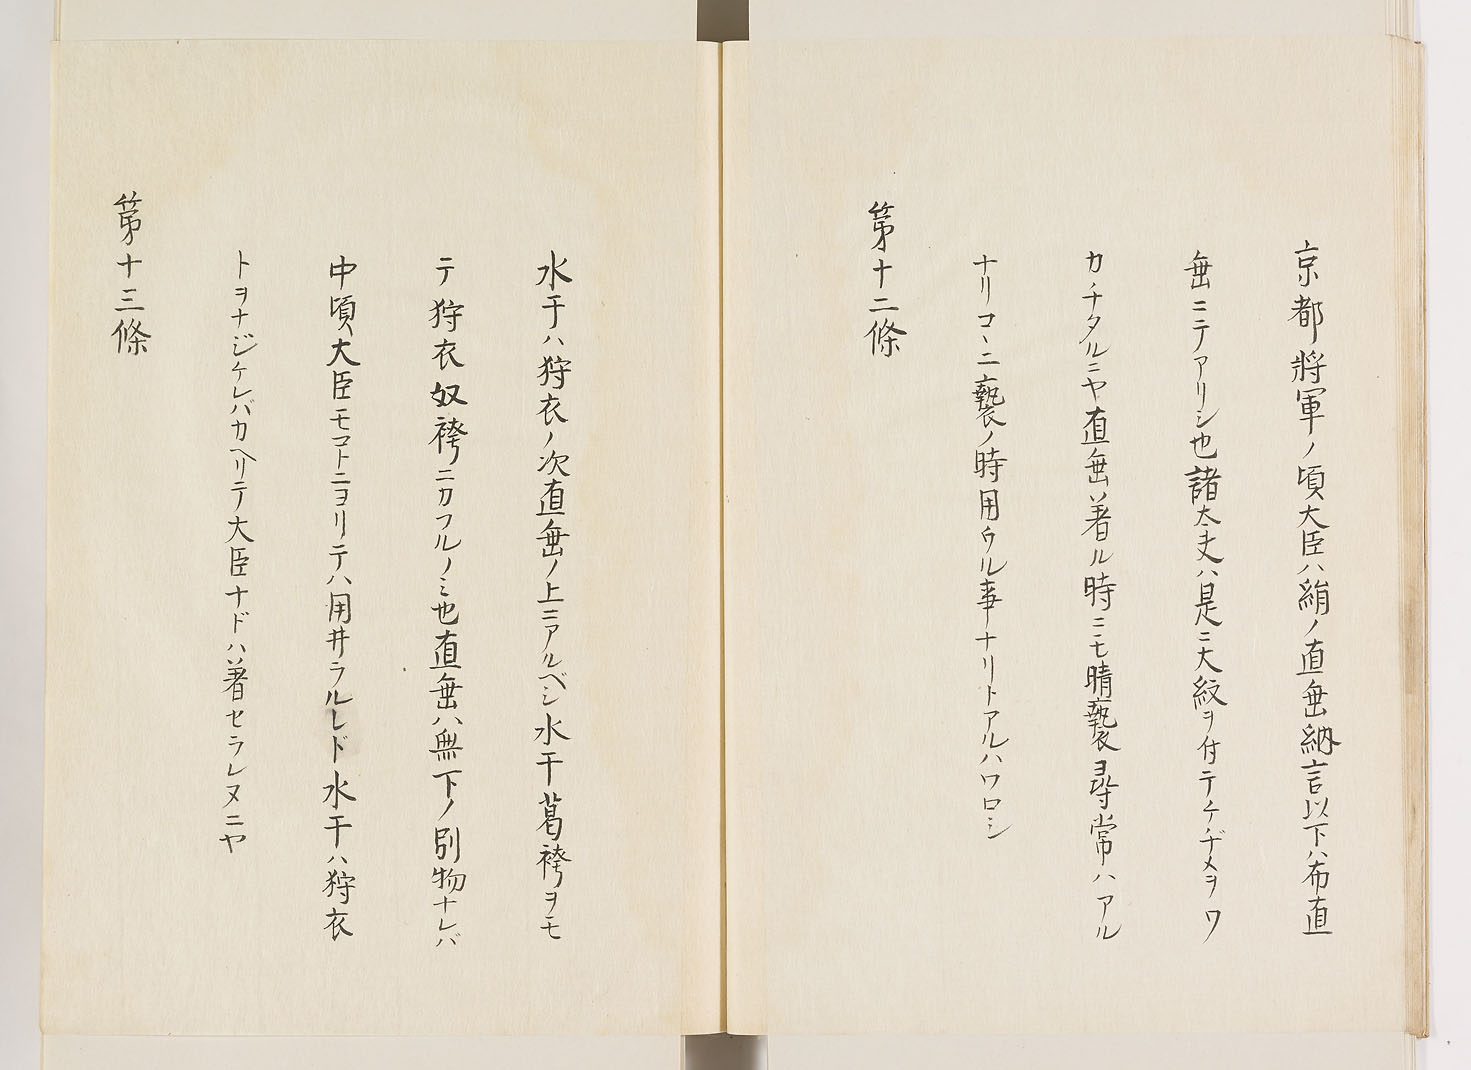 京都將軍ノ頃大臣ハ絹ノ直垂納言以下ハ布直
垂ニテアリシ也諸太夫ハ是ニ大紋ヲ付テケヂメヲワ
カチタルニヤ直垂著ル時ニモ晴褻尋常ハアル
ナリコヽニ褻ノ時用ウル事ナリトアルハワロシ
第十二條
水干ハ狩衣ノ次直垂ノ上ニアルベシ水干葛袴ヲモ
テ狩衣奴袴ニカフルノミ也直垂ハ無下ノ別物ナレバ
中頃大臣モコトニヨリテハ用井ラルレド水干ハ狩衣
トヲナジケレバカヘリテ大臣ナドハ著セラレヌニヤ
第十三條